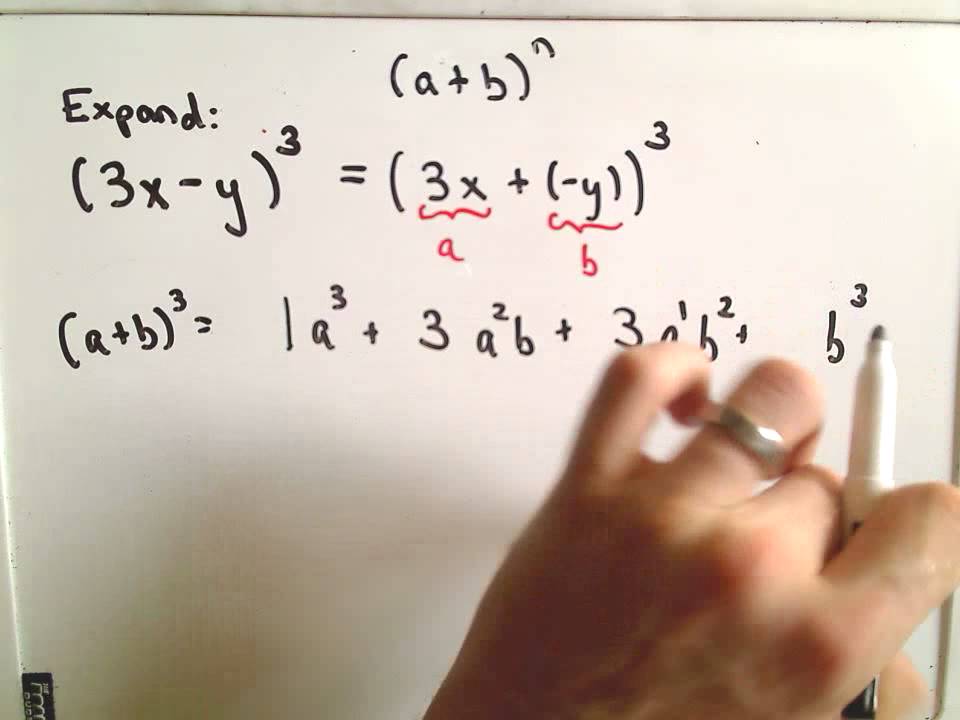 (a+b)ⁿ
Expand:
(3x-y)³ = (3x + (-y))³
a b
(a+b)³ = 1a³ + 3 a²b + 3 a¹b² + b³